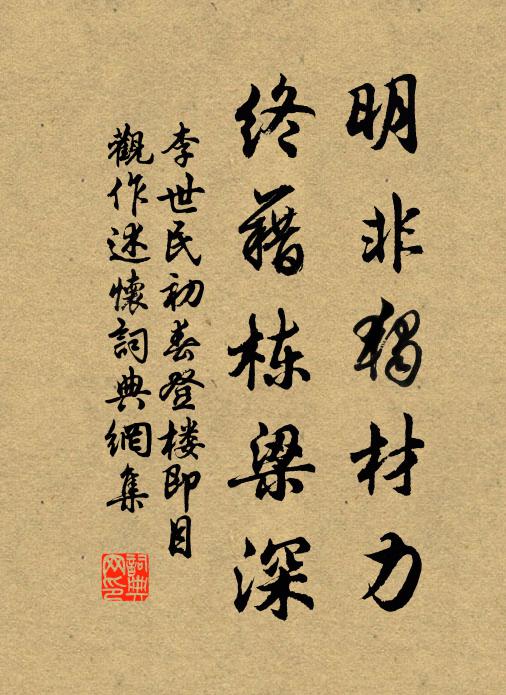 明非独材力
终藉栋梁深
李世民初春登楼即目
觀作述懷詞典網集
詞典
网印